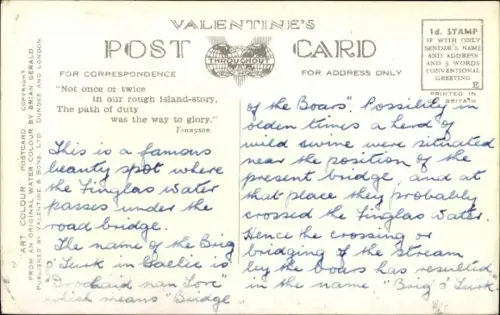 VALENTINE'S
POST CARD
THROUGHOUT
FOR CORRESPONDENCE
FOR ADDRESS ONLY
1d. STAMP
IF WITH ONLY
SENDER'S NAME
AND ADDRESS
AND 5 WORDS
CONVENTIONAL
GREETING
E
PRINTED IN
GT. BRITAIN
"Not once or twice
in our rough island-story,
The path of duty
was the way to glory."
Tennyson.
"ART COLOUR" POSTCARD COPYRIGHT
FROM AN ORIGINAL WATER COLOUR BY BRIAN GERALD.
PUBLISHED BY VALENTINE & SONS, LTD. DUNDEE AND LONDON.
This is a famous
beauty spot where
the Finglas Water
passes under the
road bridge.
The name of the Brig
o' Turk in Gaelic is
nan
which means "Bridge
of the Boars". Possibility in
olden times a herd of
wild swine were situated
near the position of the
present bridge, and at
that place they probably
crossed the Finglas Water.
Hence the crossing or
bridging of the stream
by the boars has resulted
in the name, "Brig o' Turk